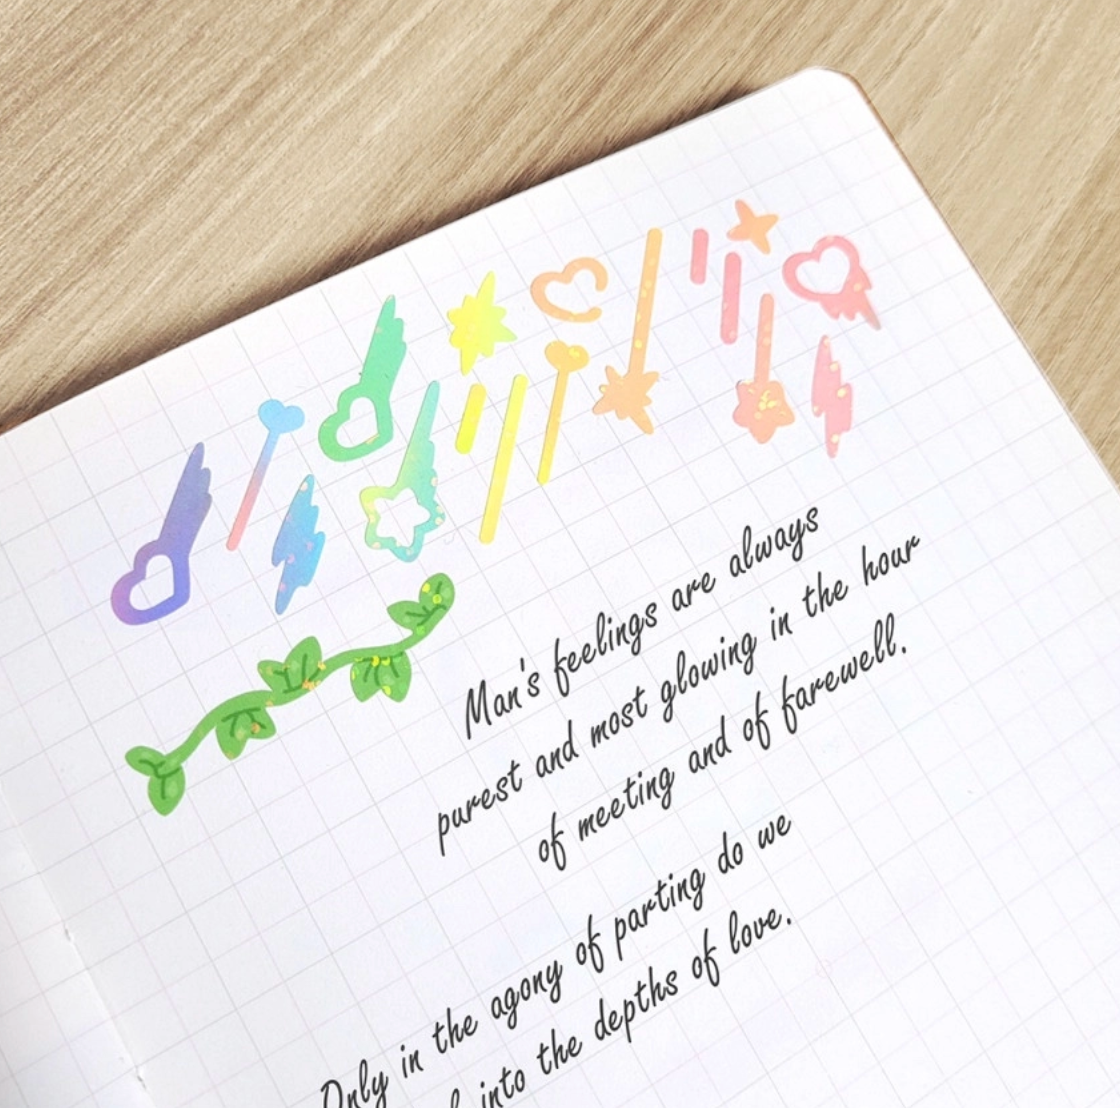 Man's feelings are always
purest and most glowing in the hour
of meeting and of farewell.
Only in the agony of parting do we
into the depths of love.